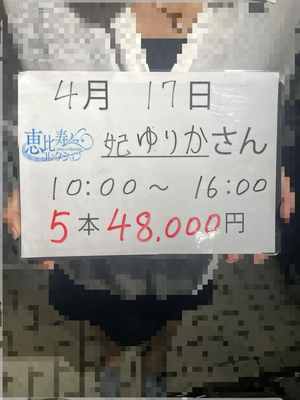 4月 17日
恵比寿
コレクション
妃ゆりかさん
10:00〜 16:00
5本48.000円